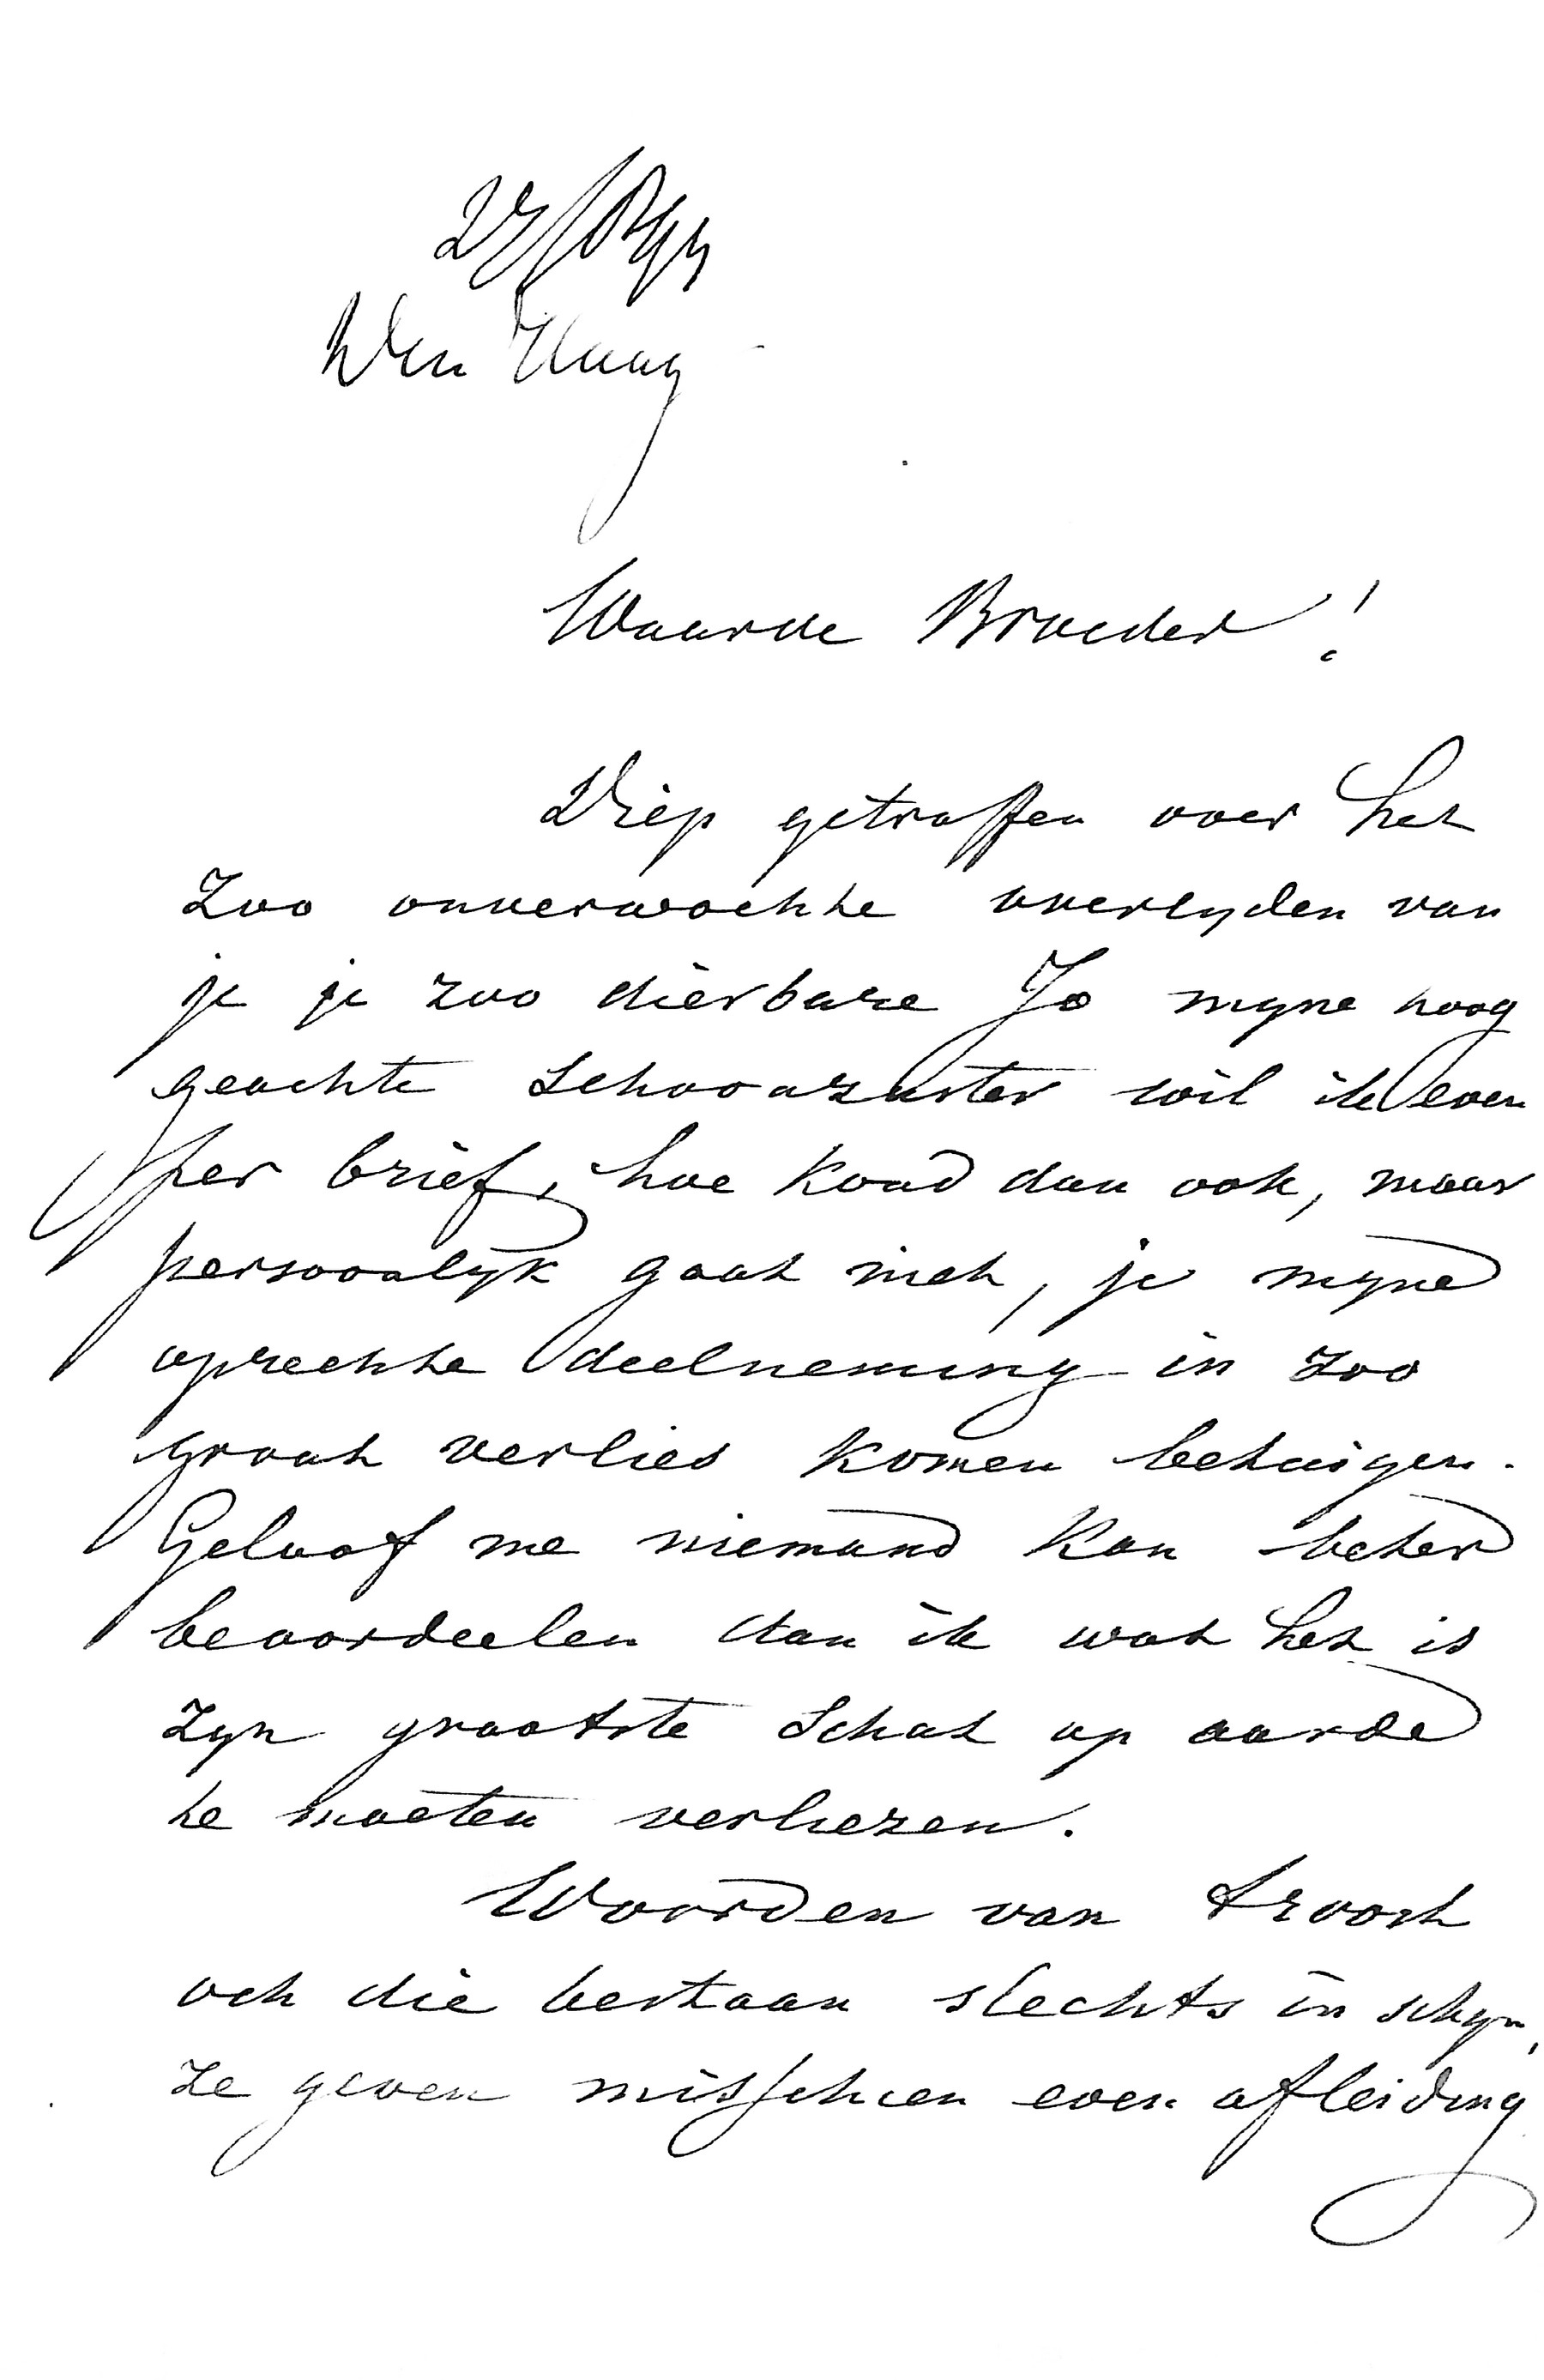 Den Haag
Waarde Broeder!
Diep getroffen over het
zoo onverwachte overlyden van
je je zoo dierbare Jo myne hoog
geachte Schoonzuster wil ik even
per brief, hoe koud dan ook, maar
persoonlyk gaat niet, je myne
oprechte deelneming in zoo
groot verlies komen betuigen.
Geloof me niemand kan beter
beoordeelen dan ik wat het is
zyn grootste Schat op aarde
te moeten verliezen.
Woorden van troost
och die bestaan slechts in schyn,
ze geven misschien even afleiding